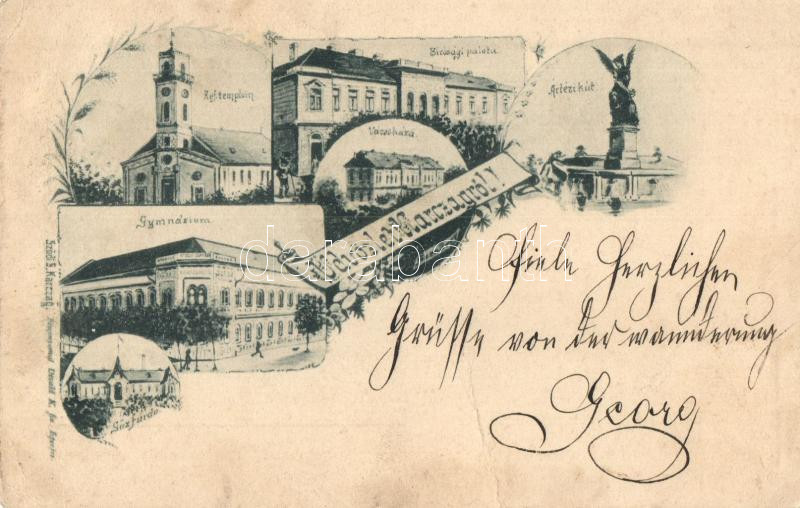 Ref. templom
Birósági palota
Artézi kút
Városháza
Üdvözlet Karczagról!
Gymnázium
Gőzfürdő
Szódi S. Karczag.
darabanth
Viele Herzlichen
Grüsse von der wannderung
Georg